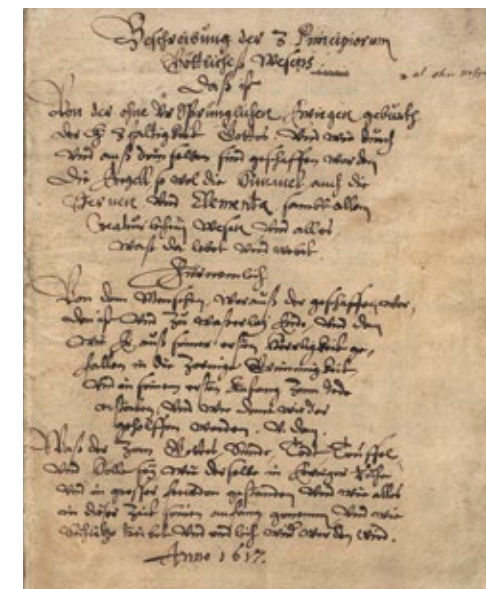 Beschreibung der 3 Principiorum
Göttliches Wesens
Daß ist
Von der ohne Vrsprünglichen Ewigen geburth
der H: 3 faltigkeit Gottes Vnd wie durch
Vnd auß dem selben sind geschaffen worden
Die Engell so wol die Himmel auch die
Sternen Vnd Elementa sambt allem
Creatürlichem Wesen Vnd alles
waß da lebet Vnd webet
Fürnemlich
Von dem Menschen, Worauß der geschaffen wor,
den ist Vnd zu waßerley Ende, Vnd dan
Wie Er auß seiner ersten Herligkeit ge,
fallen in die Zornige Grimmigkeit
Vnd in seinem ersten Anfang zum Tode
erstorben, Vnd wie deme wieder
geholffen worden,
Waß der Zorn Gottes Sünde, Todt Teuffel
Vnd Helle sey wie derselbe in Ewiger Ruhe
Vnd in grosser freuden gestanden Vnd wie alles
in dieser Zeit seinen anfang genomen Vnd wie
Vnd endlich werden wird.
Anno 1617.